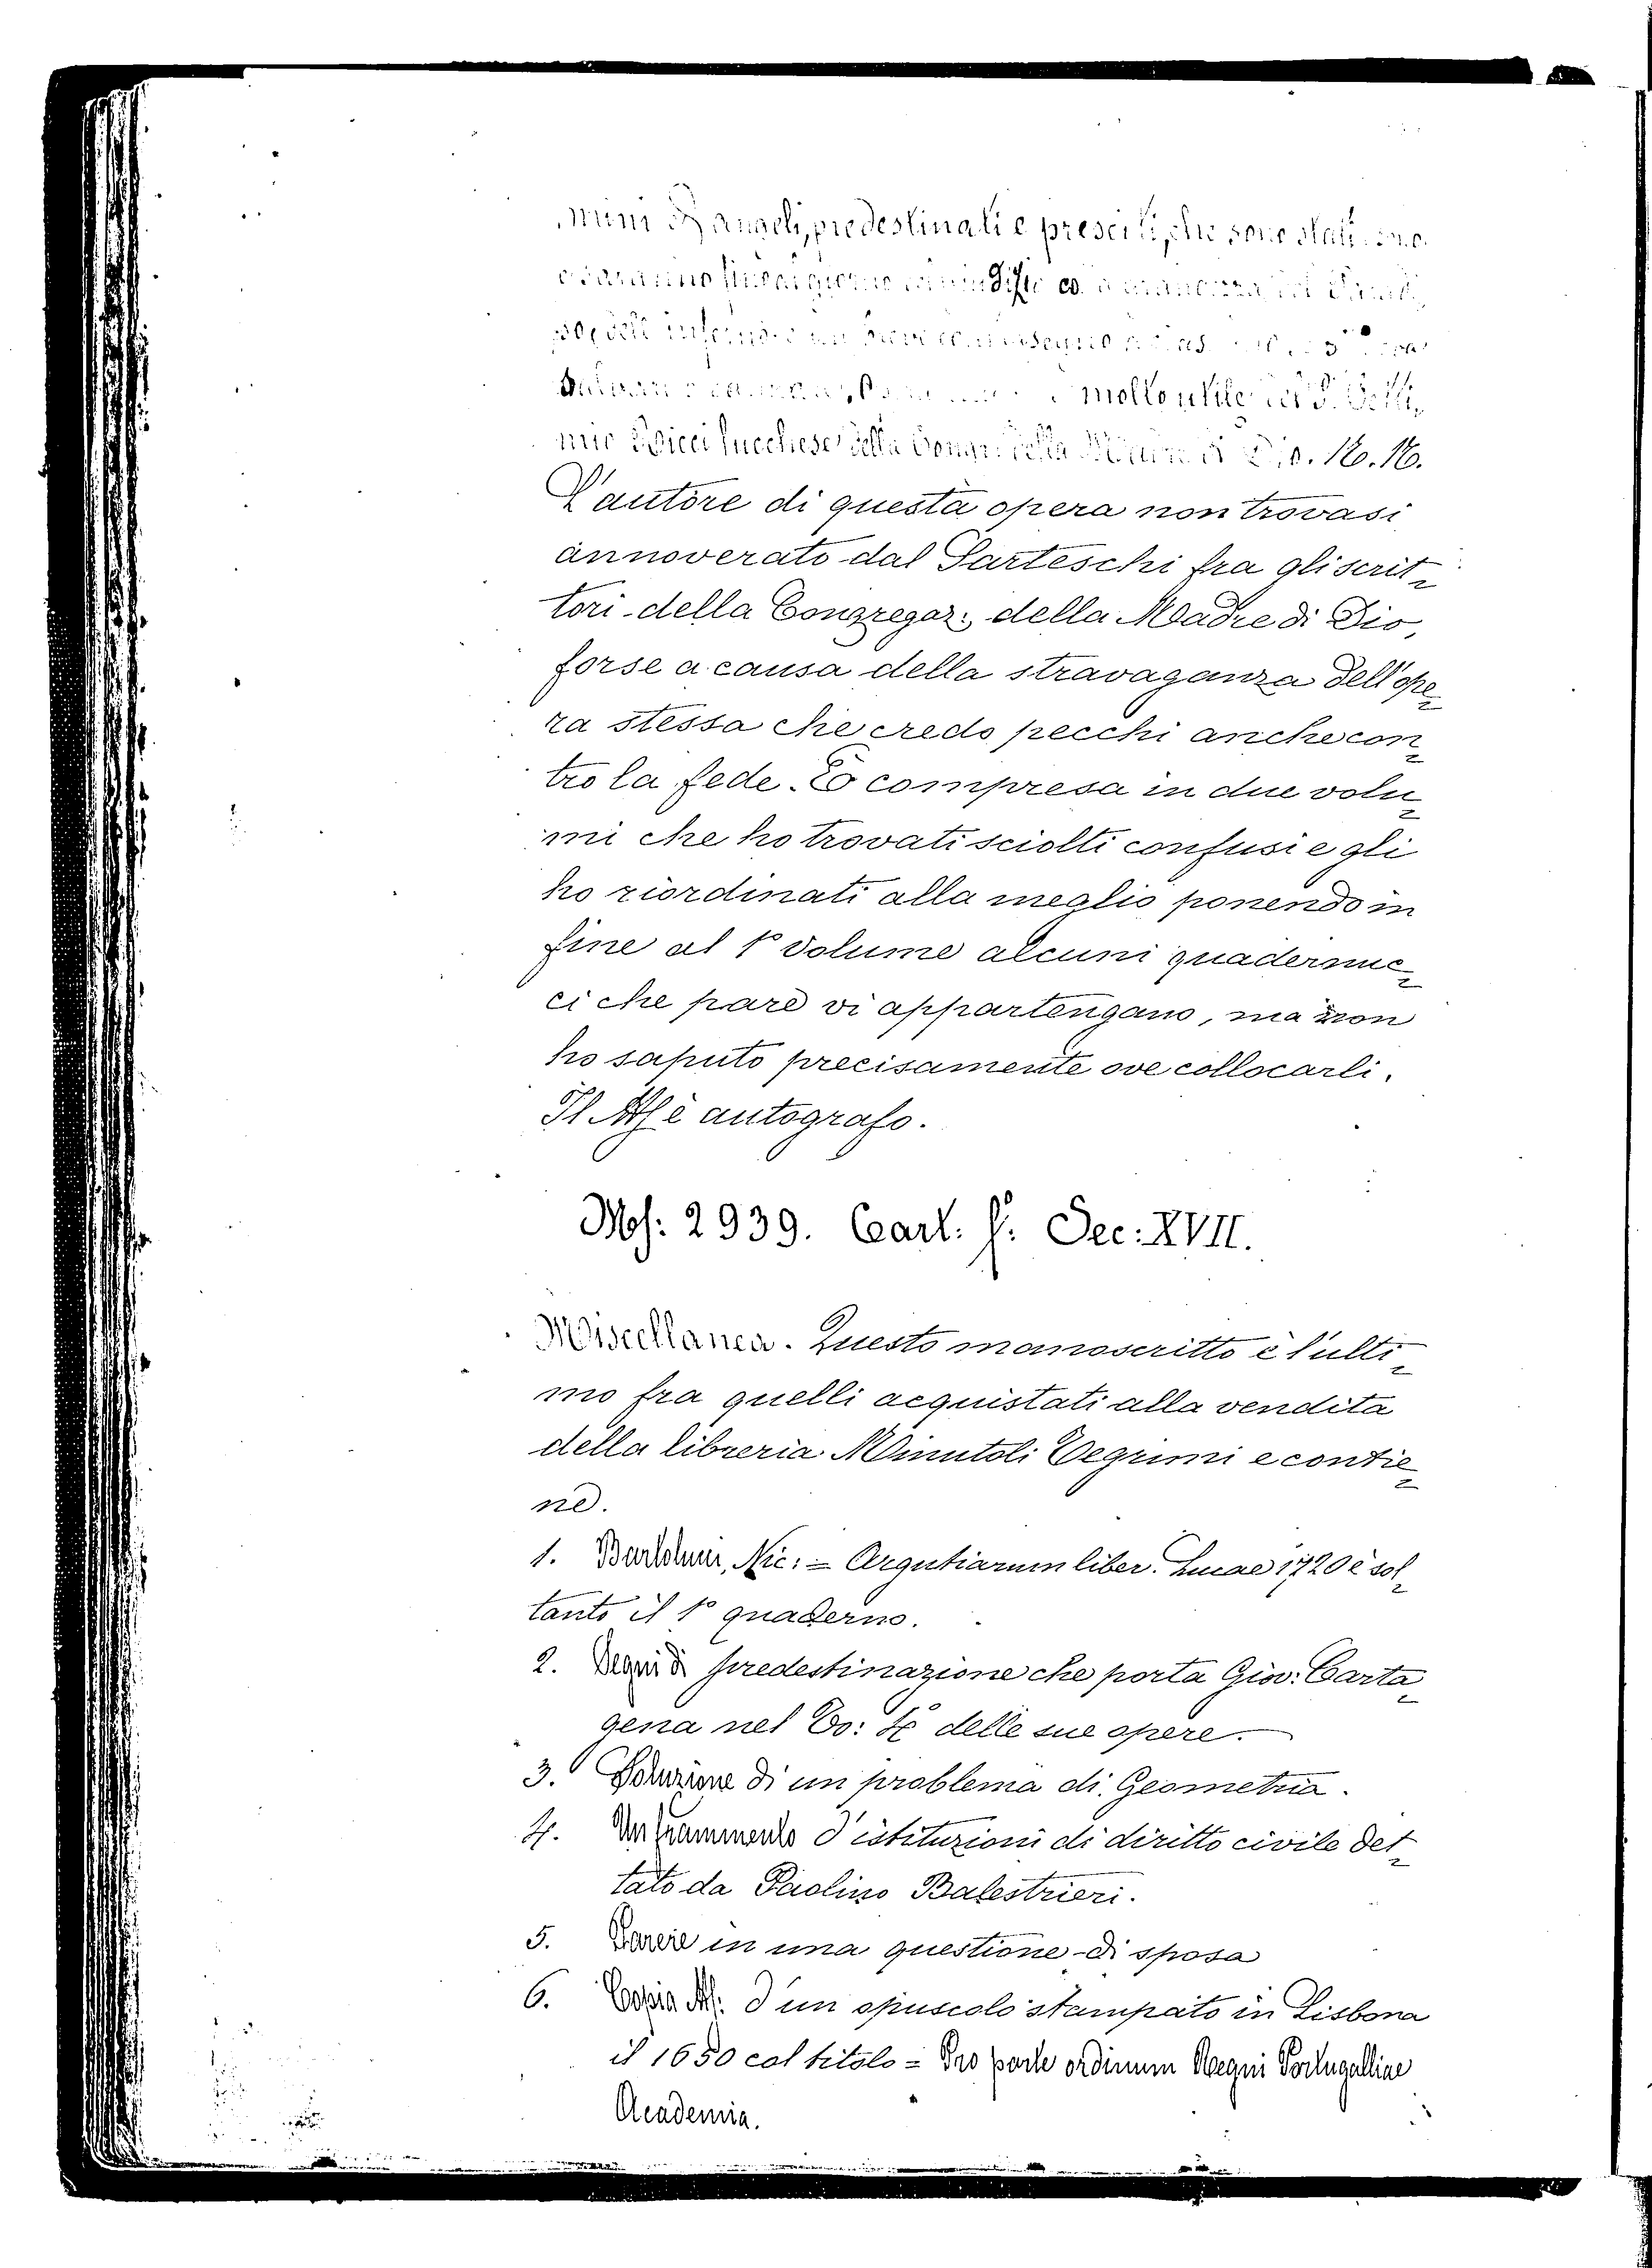 angeli, predestinati e presciti, che sono stati
molto utile
Ricci lucchese della Congr: della
L'autore di questa opera non trovasi
annoverato dal Sarteschi fra gli scrit-
tori della Congregaz: della Madre di Dio,
forse a causa della stravaganza dell'ope-
ra stessa che credo pecchi anche con-
tro la fede. È compresa in due volu-
mi che ho trovati sciolti confusi e gli
ho riordinati alla meglio ponendo in
fine al 1° volume alcuni quadernuc-
ci che pare vi appartengano, ma non
ho saputo precisamente ove collocarli.
Il Ms è autografo.
Ms: 2939. Cart: f: Sec: XVII.
Miscellanea. Questo manoscritto è l'ulti-
mo fra quelli acquistati alla vendita
della libreria Minutoli Tegrimi e contie-
ne.
1. Nic: = Argutiarum liber. Lucae 1720 è sol-
tanto il 1° quaderno.
2. Segni di predestinazione che porta Gio: Carta-
gena nel delle sue opere.
3. Soluzione di un problema di Geometria.
4. Un frammento d'istituzioni di diritto civile det-
tato da Paolino Balestrieri.
5. Parere in una questione di sposa
6. Copia Ms. d'un opuscolo stampato in Lisbona
il 1650 col titolo = Pro parte ordinum Regni Portugalliae
Academia.